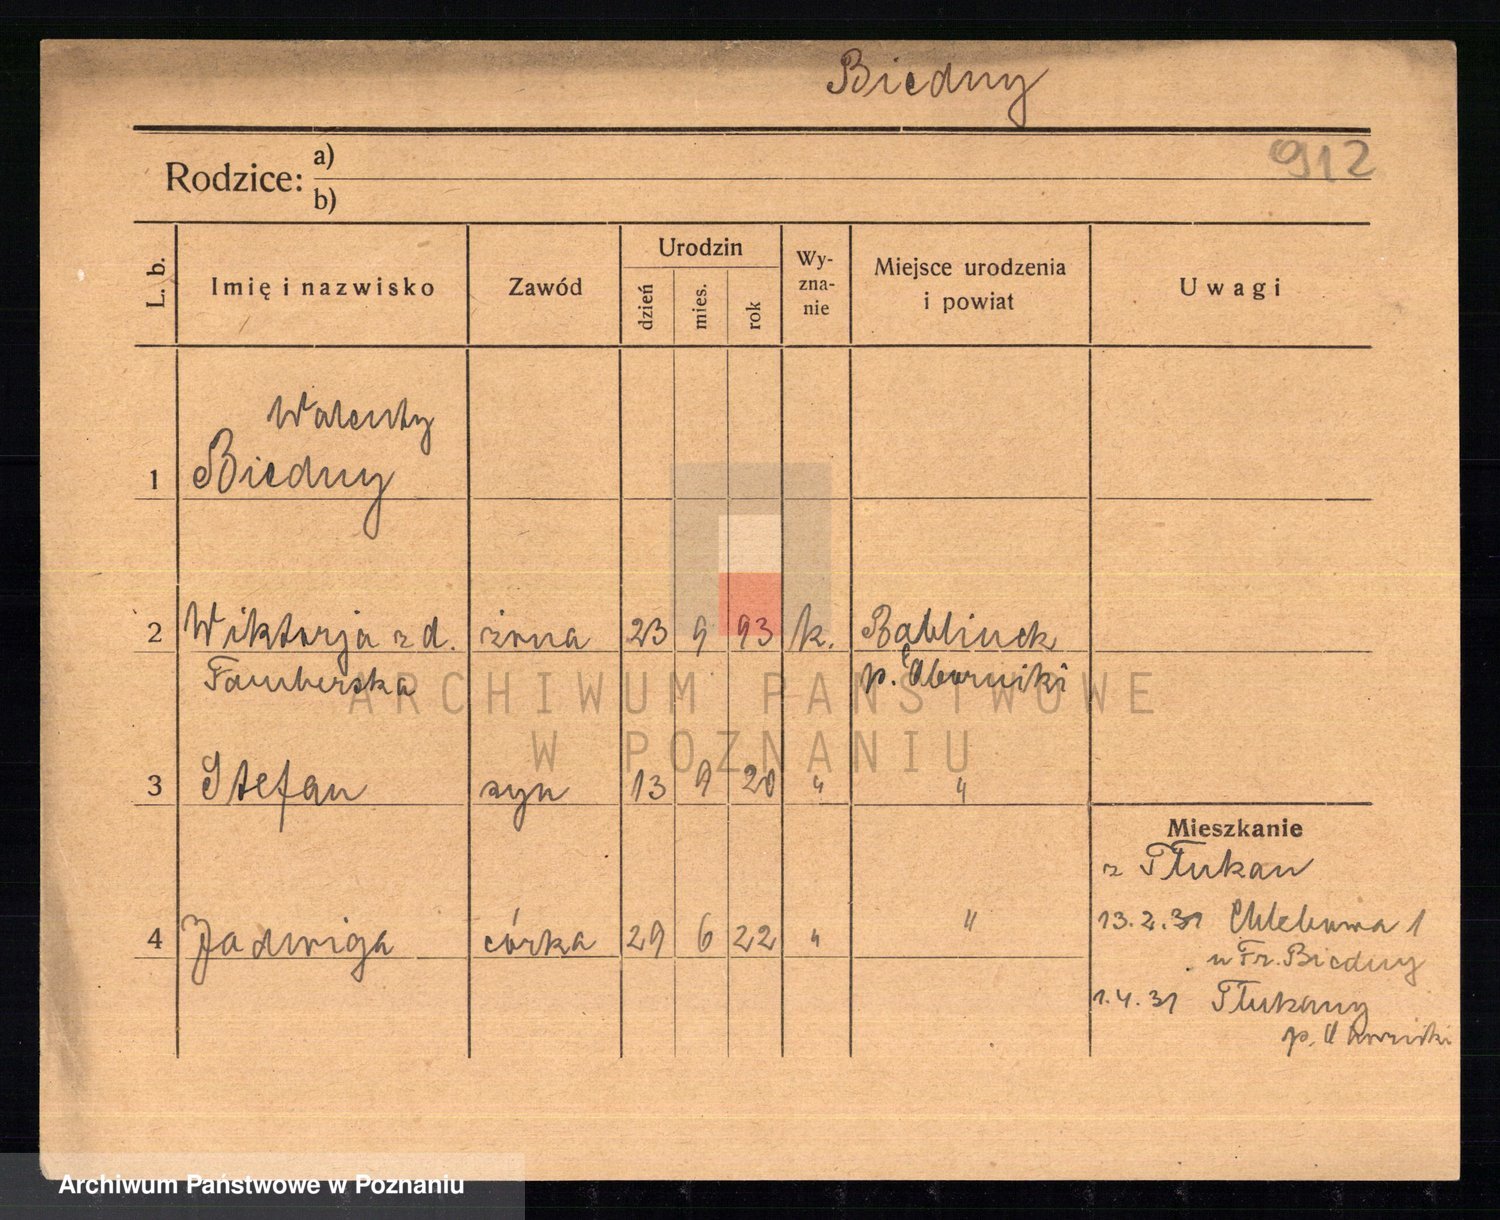 Biedny
912
Rodzice: a)
b)
L. b.
Imię i nazwisko
Zawód
Urodzin
dzień
mies.
rok
Wy-
zna-
nie
Miejsce urodzenia
i powiat
Uwagi
Walenty
1 Biedny
2 Wiktorja z d. żona 23 9 93 k. Bąblinek
Famberska p. Oborniki
3 Stefan syn 13 9 20 " "
4 Jadwiga córka 29 6 22 " "
Mieszkanie
z Tłukan
13.2.31 Chlebowa 1
u Fr. Biedny
1.4.31 Tłukawy
p.
ARCHIWUM PAŃSTWOWE
W POZNANIU
Archiwum Państwowe w Poznaniu